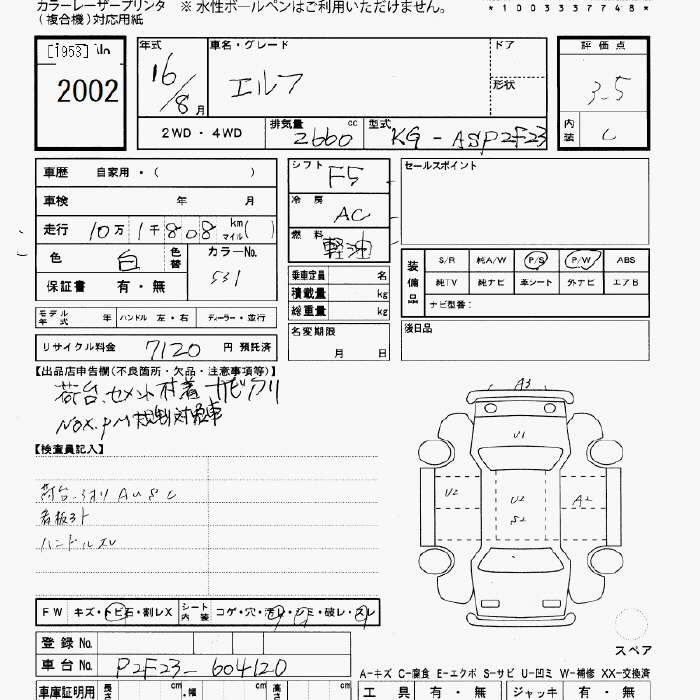 カラーレーザープリンタ ※ 水性ボールペンはご利用いただけません。
(複合機)対応用紙
*1003337748*
[1953]
2002
年式 16/8月
車名・グレード エルフ
ドア
形状
評価点 3.5
内装 C
2WD・4WD
排気量 2660 cc
型式 KG-ASP2F23
車歴 自家用・( )
車検 年 月
走行 10万1千808 km マイル( )
色 白 色替 カラーNo. 531
保証書 有・無
シフト F5
冷房 AC
燃料 軽油
乗車定員 名
積載量 kg
総重量 kg
セールスポイント
装備品 S/R 純A/W P/S P/W ABS
純TV 純ナビ 革シート 外ナビ エアB
ナビ型番:
モデル年式 年 ハンドル 左・右 ディーラー・並行
名変期限 月 日
後日品
リサイクル料金 7120 円 預託済
【出品店申告欄(不良箇所・欠品・注意事項等)】
荷台.セメント付着 サビアリ
NOX.PM規制対応車
【検査員記入】
荷台
看板
ハンドルスレ
A3
U1
U2
U2
S2
A2
FW キズ・トビ石・割レX シート内装 コゲ・穴・汚レ・シミ・破レ・スレ
スペア
登録No.
車台No. P2F23-604120
A-キズ C-腐食 E-エクボ S-サビ U-凹ミ W-補修 XX-交換済
車庫証明用 長さ cm 幅 cm 高さ cm
工具 有・無 ジャッキ 有・無